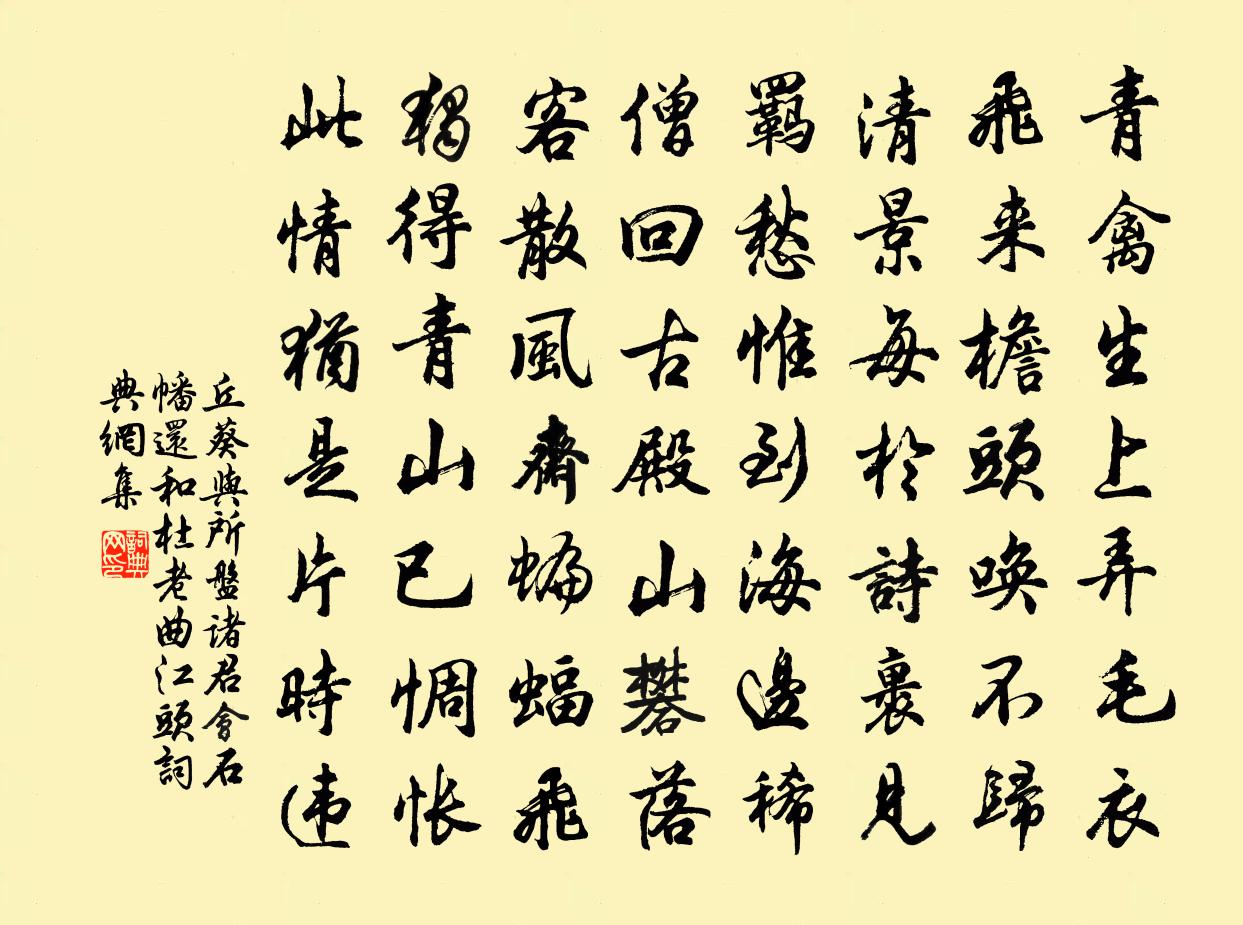 青禽生上弄毛衣
飛来檐頭喚不歸
清景每於詩裏見
羈愁惟到海邊稀
僧回古殿山礬落
客散風齋蝙蝠飛
獨得青山已惆怅
此情猶是片時违
丘葵與所盤诸君會石
幡還和杜老曲江頭詞
典網集
詞典
网印